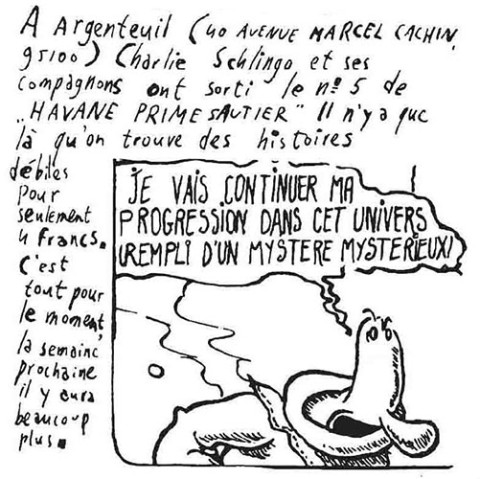 A ARGENTEUIL (40 AVENUE MARCEL CACHIN,
95100) Charlie Schlingo et ses
compagnons ont sorti le nº 5 de
"HAVANE PRIMESAUTIER" Il n'y a que
là qu'on trouve des histoires
débiles
pour
seulement
4 francs.
C'est
tout pour
le moment,
la semaine
prochaine
il y aura
beaucoup
plus.
JE VAIS CONTINUER MA
PROGRESSION DANS CET UNIVERS
(REMPLI D'UN MYSTERE MYSTERIEUX)